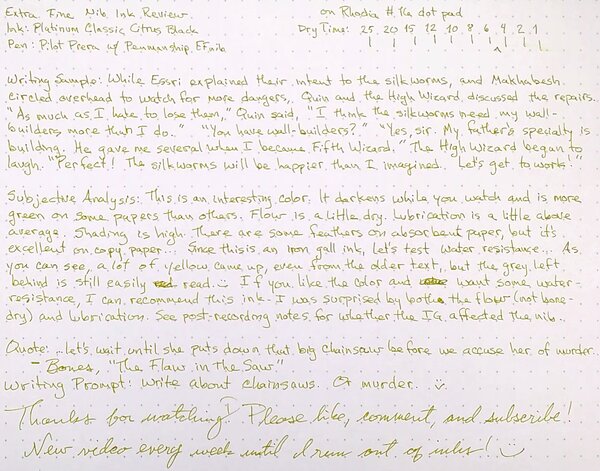 Extra Fine Nib Ink Review on Rhodia #16 dot pad
Ink: Platinum Classic Citrus Black Dry Time: 25 20 15 12 10 8 6 4 2 1
Pen: Pilot Prera w/ Penmanship EF nib
Writing Sample: While Essri explained their intent to the silkworms, and Makhabesh
circled overhead to watch for more dangers, Quin and the High Wizard discussed the repairs.
"As much as I hate to lose them," Quin said, "I think the silkworms need my wall-
builders more than I do." "You have wall-builders?" "Yes, sir. My father's specialty is
building. He gave me several when I became Fifth Wizard." The High Wizard began to
laugh. "Perfect! The silkworms will be happier than I imagined. Let's get to work!"
Subjective Analysis: This is an interesting color. It darkens while you watch and is more
green on some papers than others. Flow is a little dry. Lubrication is a little above
average. Shading is high. There are some feathers on absorbent paper, but it's
excellent on copy paper... Since this is an iron gall ink, let's test water resistance... As
you can see, a lot of yellow came up, even from the older text, but the grey left
behind is still easily read. :) If you like the color and want some water-
resistance, I can recommend this ink. I was surprised by both the flow (not bone-
dry) and lubrication. See post-recording notes for whether the IG affected the nib...
Quote: ...let's wait until she puts down that big chainsaw before we accuse her of murder.
- Bones, "The Flaw in the Saw"
Writing Prompt: Write about chainsaws. Or murder. :)
Thanks for watching! Please like, comment, and subscribe!
New video every week until I run out of inks! :)